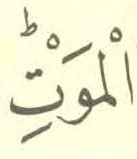 الْمَوْتِؕ